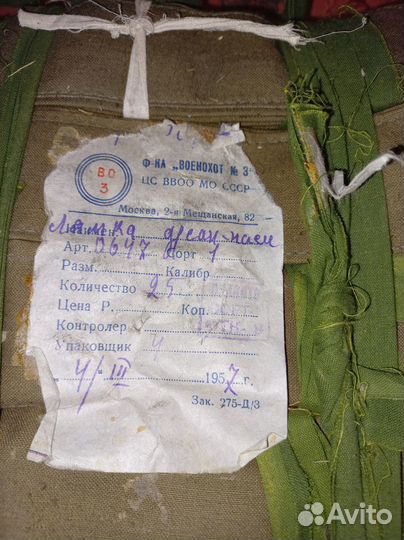 ВО
3
Ф-КА „ВОЕНОХОТ № 3"
ЦС ВВОО МО СССР
Москва, 2-я Мещанская, 82
Лямка
Арт. 0647 Сорт 1
Разм. Калибр
Количество 25
Цена Р. Коп.
Контролер
Упаковщик 4
4/III 1957 г.
Зак. 275-Д/3
Avito